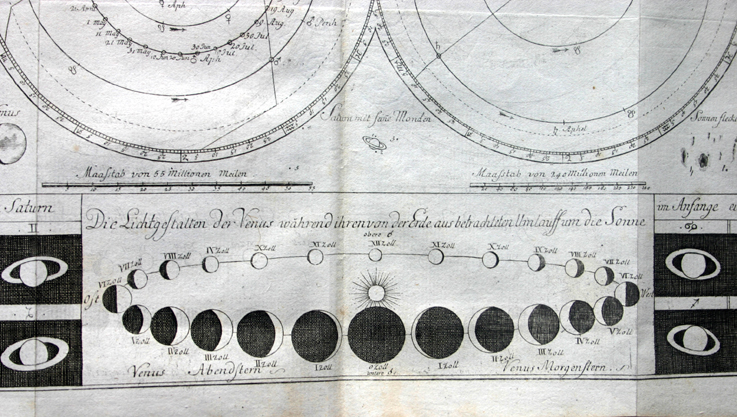 Aph
19 Aug.
1 may
11 may
21 may
31 may
30 Jul.
20 Jul.
Aph
Perih.
Aphel
Venus
Saturn mit seine Monden
Sonnen
Maaßstab von 55 Millionen Meilen
Maaßstab von 240 Millionen Meilen
Saturn
Die Lichtgestalten der Venus während ihren von der Erde aus betrachteten Umlauff um die Sonne
im Anfange
obere ☌
VI Zoll
VII Zoll
VIII Zoll
IX Zoll
X Zoll
XI Zoll
XII Zoll
XI Zoll
X Zoll
IX Zoll
VIII Zoll
VII Zoll
VI Zoll
Ost
V Zoll
IV Zoll
III Zoll
II Zoll
I Zoll
0 Zoll
untere ☌
I Zoll
II Zoll
III Zoll
IV Zoll
V Zoll
Venus Abendstern
Venus Morgenstern